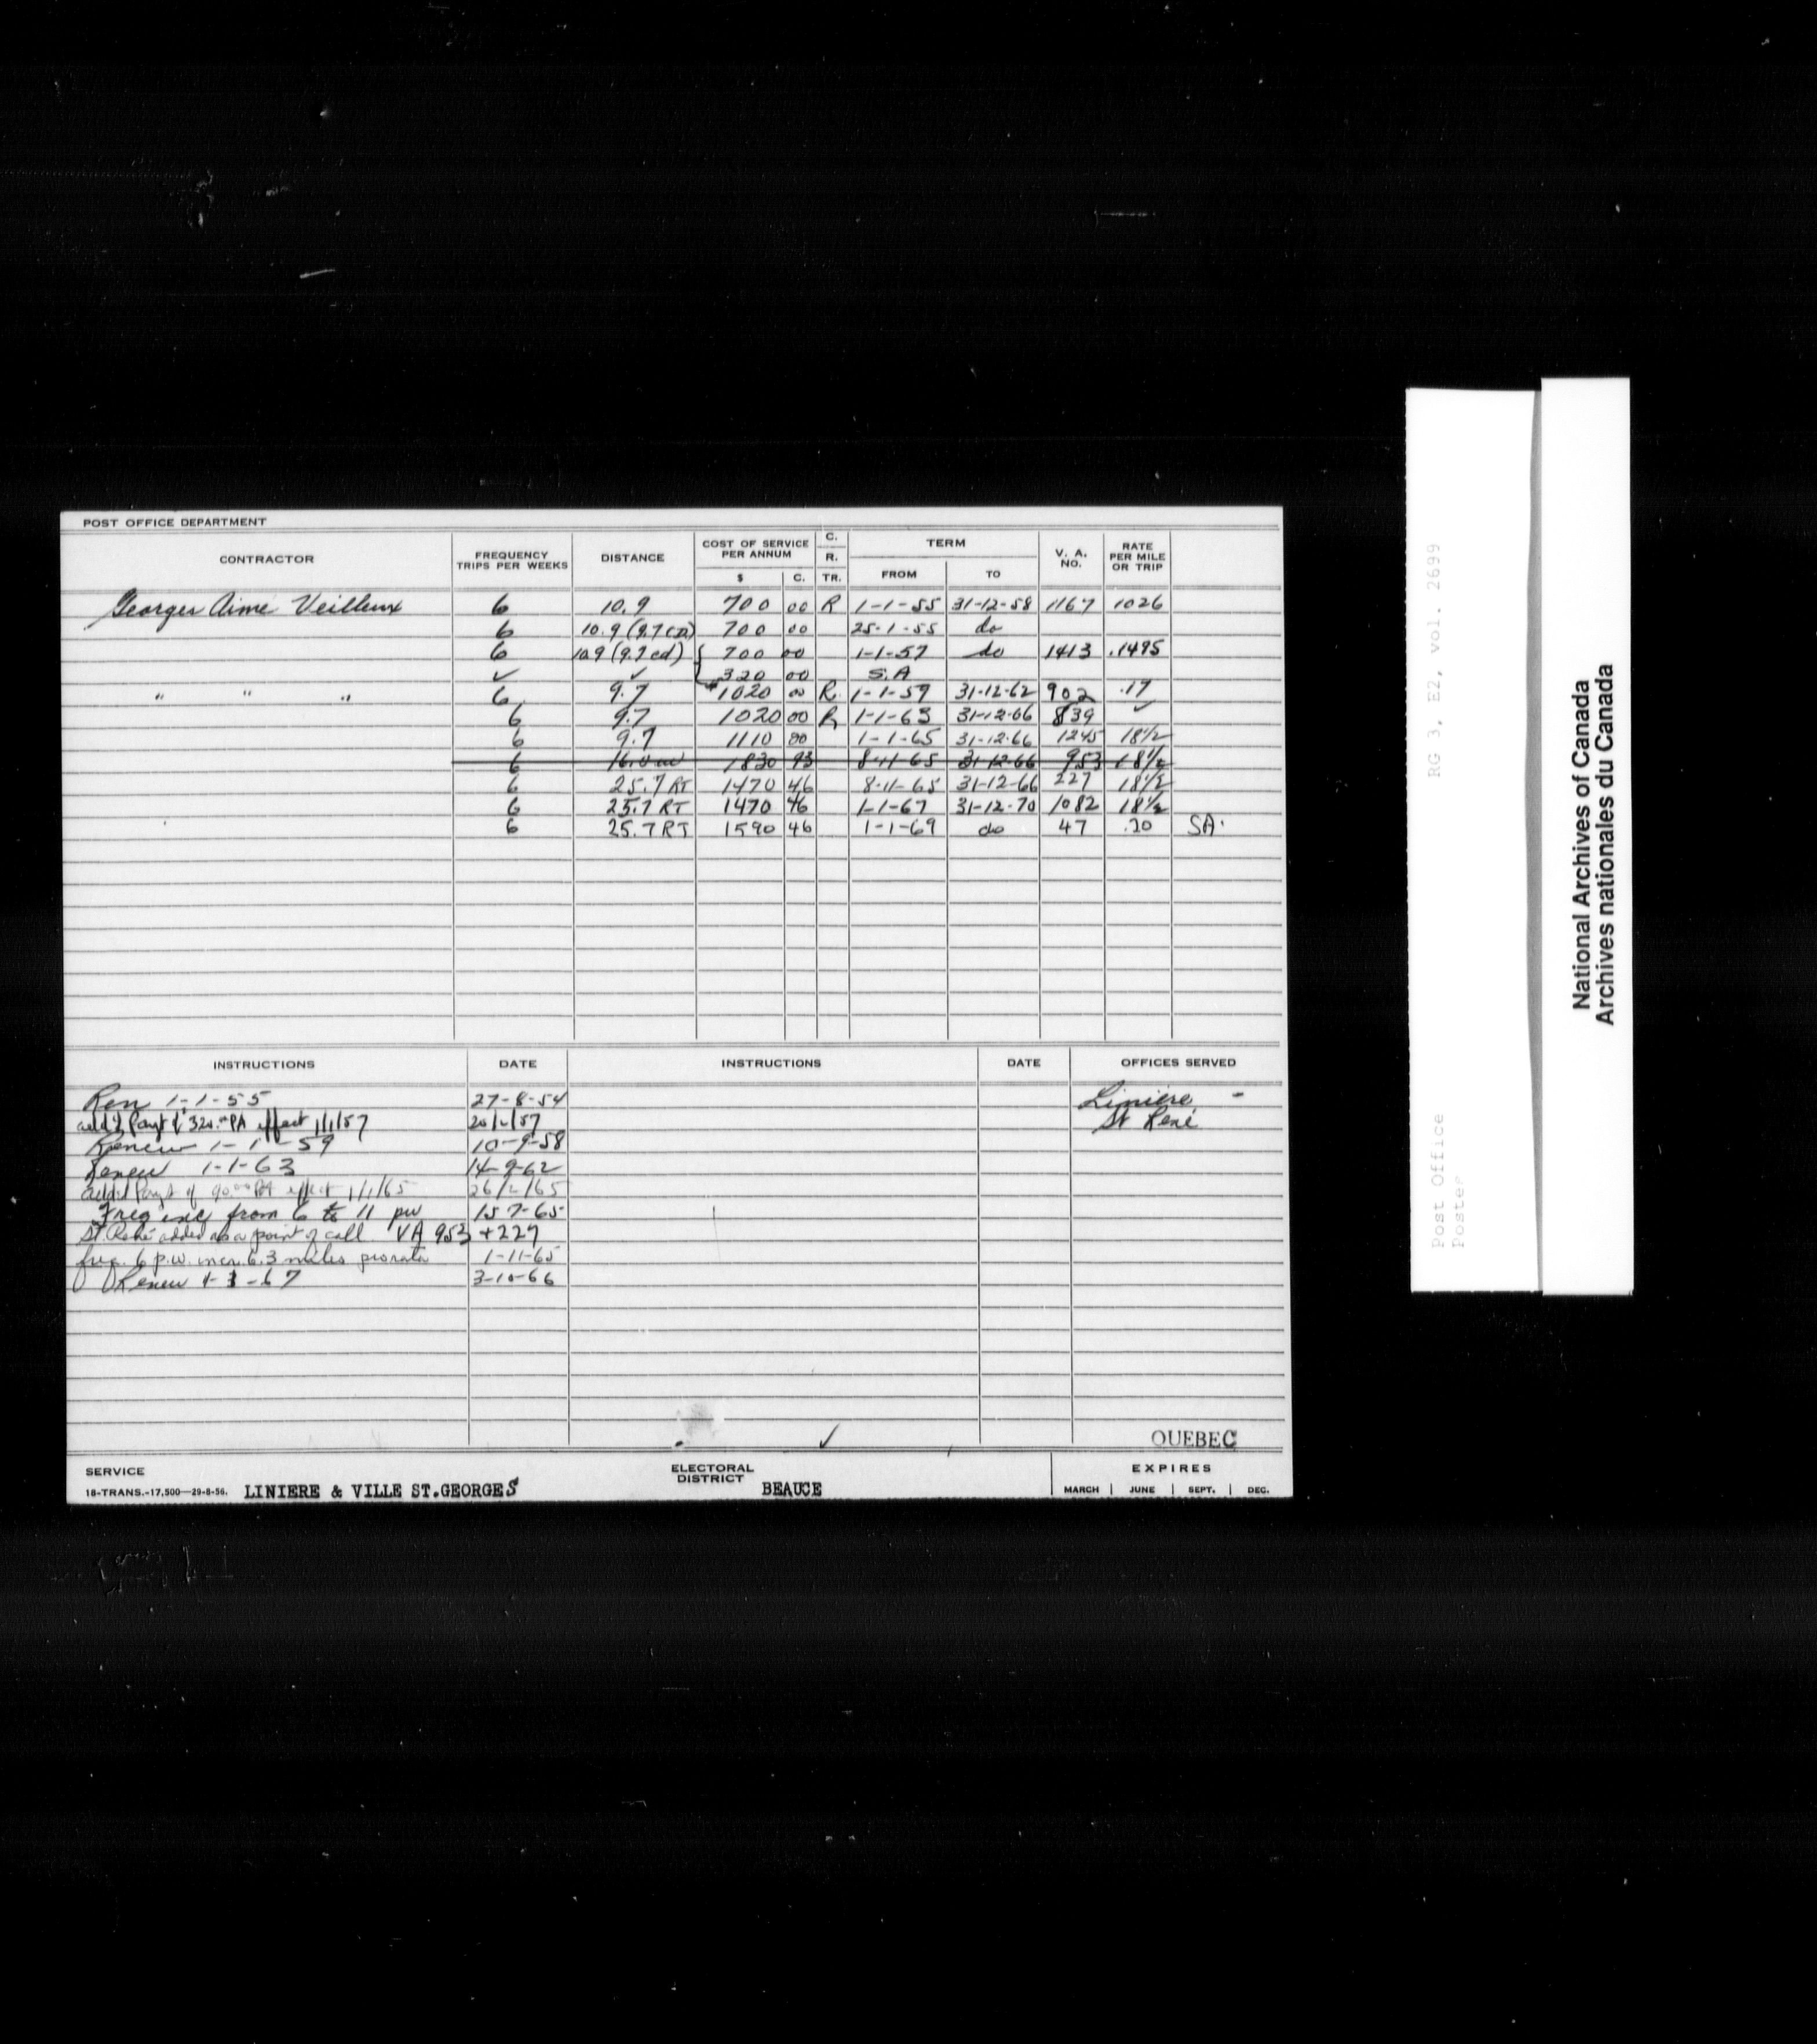 POST OFFICE DEPARTMENT
CONTRACTOR FREQUENCY TRIPS PER WEEKS DISTANCE COST OF SERVICE PER ANNUM $ C. C. R. TR. TERM FROM TO V. A. NO. RATE PER MILE OR TRIP
Georges Aime Veilleux 6 10.9 700 00 R 1-1-55 31-12-58 1167 1026
6 10.9 (9.7 cd) 700 00 25-1-55 do
6 10.9 (9.7 cd) 700 00 1-1-57 do 1413 .1495
✓ ✓ 320 00 S.A
" " " 6 9.7 1020 00 R 1-1-59 31-12-62 902 .17
6 9.7 1020 00 R 1-1-63 31-12-66 839 ✓
6 9.7 1110 00 1-1-65 31-12-66 1245 18½
6 16.0 1830 93 8-11-65 31-12-66 953 18½
6 25.7 RT 1470 46 8-11-65 31-12-66 227 18½
6 25.7 RT 1470 46 1-1-67 31-12-70 1082 18½
6 25.7 RT 1590 46 1-1-69 do 47 .20 SA.
INSTRUCTIONS DATE INSTRUCTIONS DATE OFFICES SERVED
Ren 1-1-55 27-8-54 Liniere -
add'l Payt of 320.00 PA effect 1/1/57 20/2/57 St René
Renew 1-1-59 10-9-58
Renew 1-1-63 14-9-62
add'l Payt of 90.00 PA effect 1/1/65 26/2/65
Freq inc from 6 to 11 pw 15-7-65
St René added as a point of call VA 953 + 227
freq. 6 p.w. incr. 6.3 miles prorata 1-11-65
Renew 1-1-67 3-10-66
✓
QUEBEC
SERVICE
18-TRANS.-17,500—29-8-56. LINIERE & VILLE ST.GEORGES
ELECTORAL DISTRICT BEAUCE
EXPIRES
MARCH | JUNE | SEPT. | DEC.
RG 3, E2, vol. 2699
Post Office
Postes
National Archives of Canada
Archives nationales du Canada